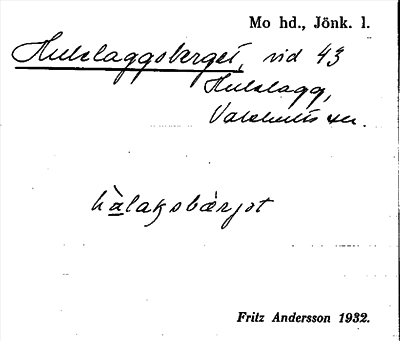 Mo hd., Jönk. l.
Hulslaggsberget, vid 43
Hulslagg,
Valdshults sn.
hàlaksbærjət
Fritz Andersson 1932.